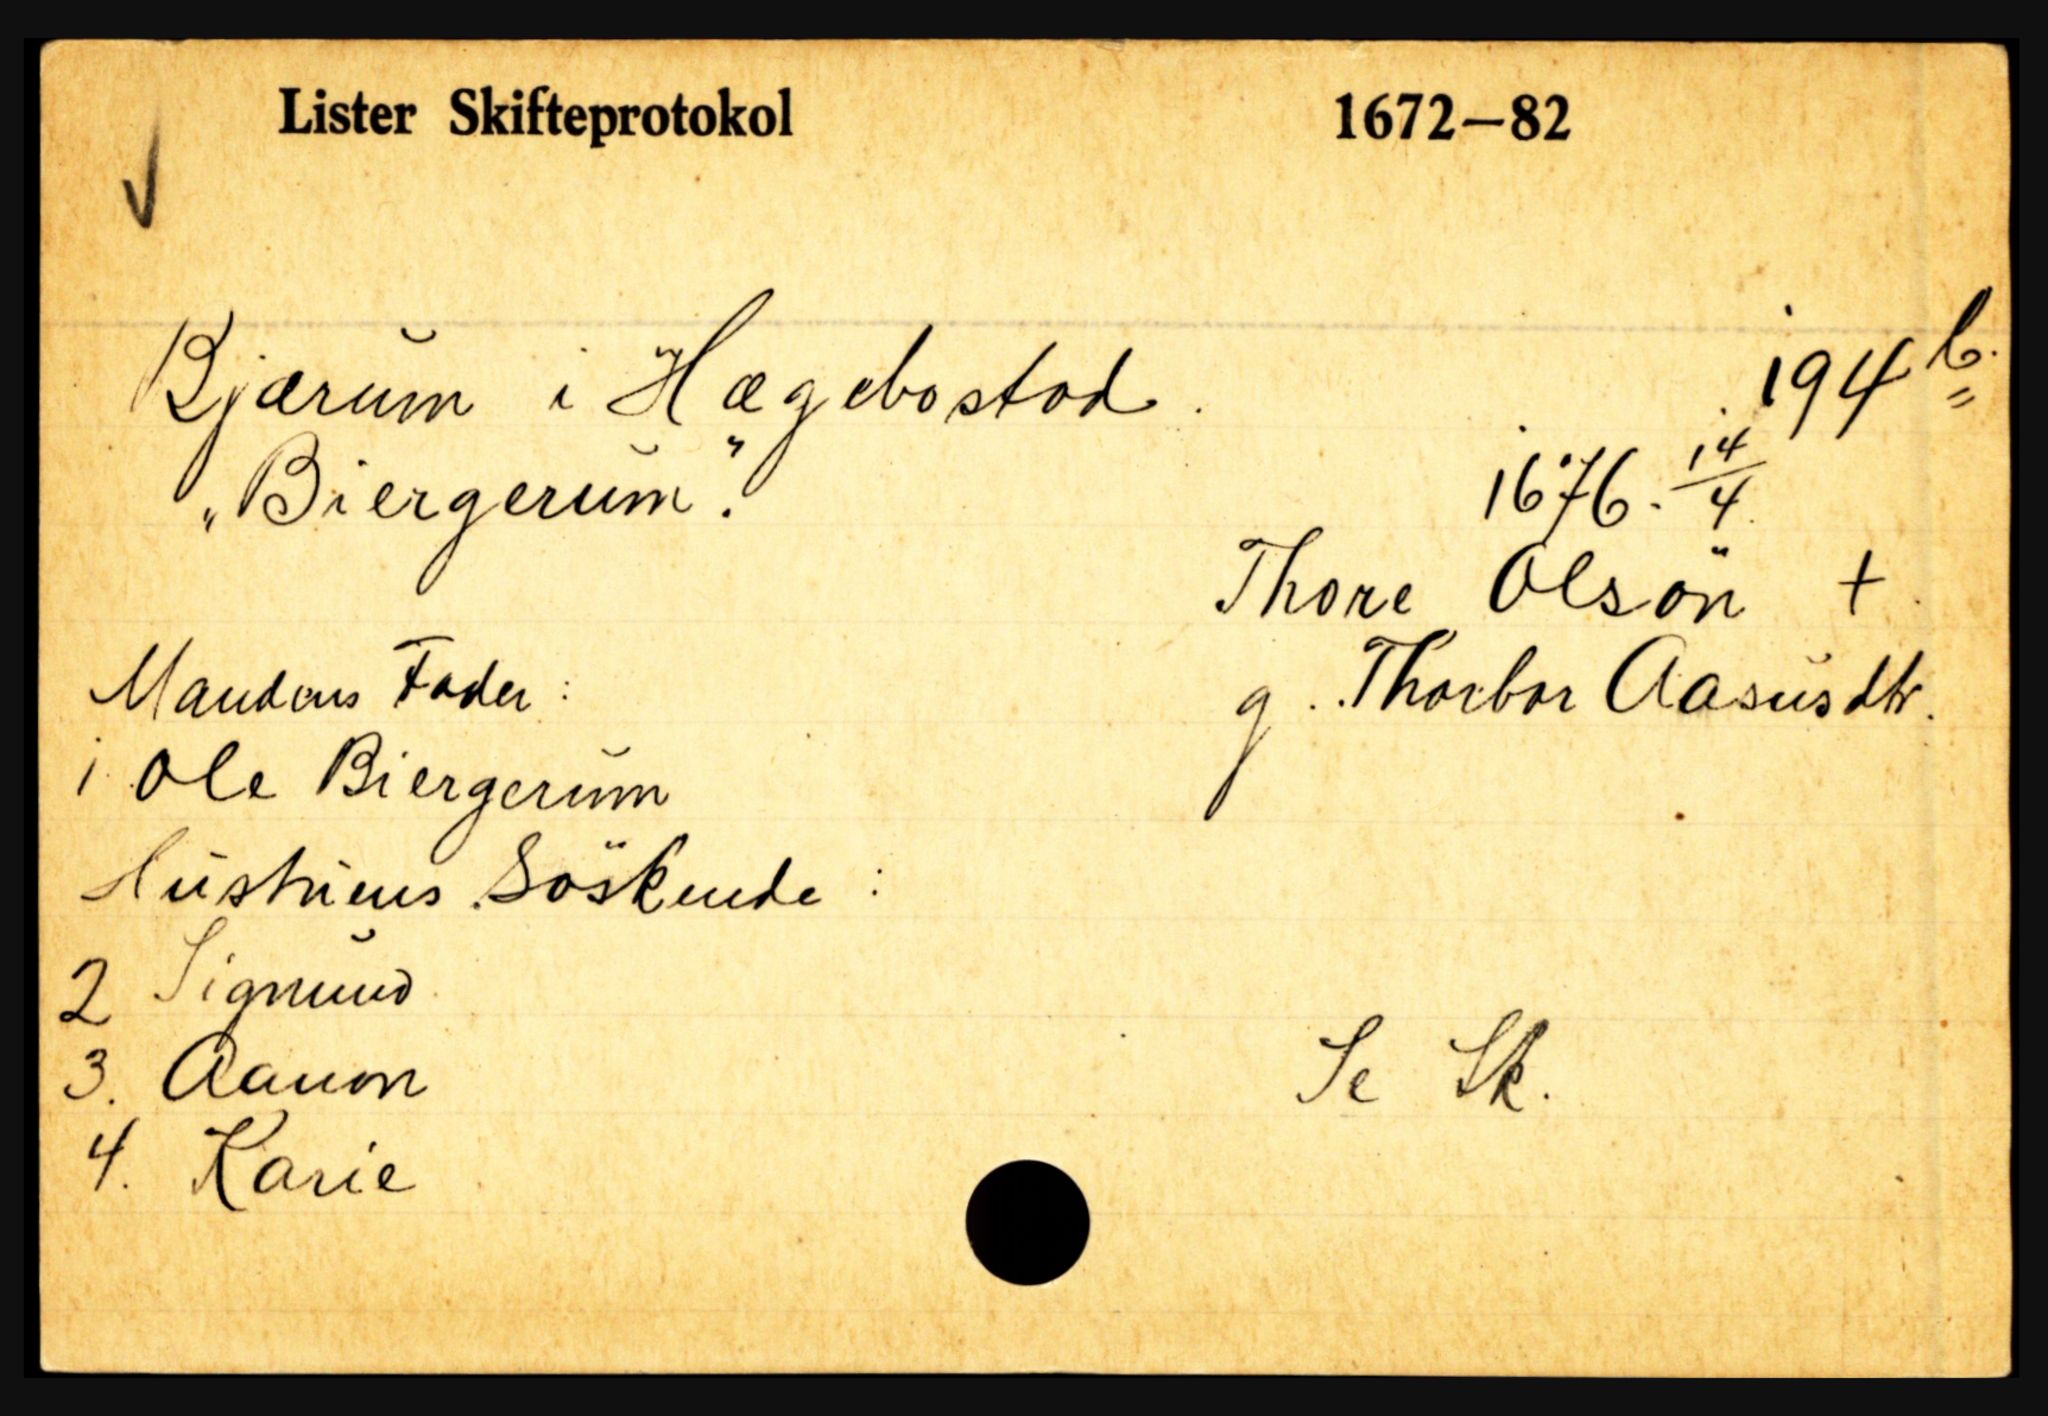 Lister Skifteprotokol 1672—82
Bjærum i Hægebostad. 194 b.
„Biergerum".
1676. 14/4
Thore Olsön +
g. Thorbor Aasusdtr.
Mandens Fader:
1. Ole Biergerum
Hustruens Söskende:
2 Sigmund
3. Aanon
4. Karie
Se Sk.